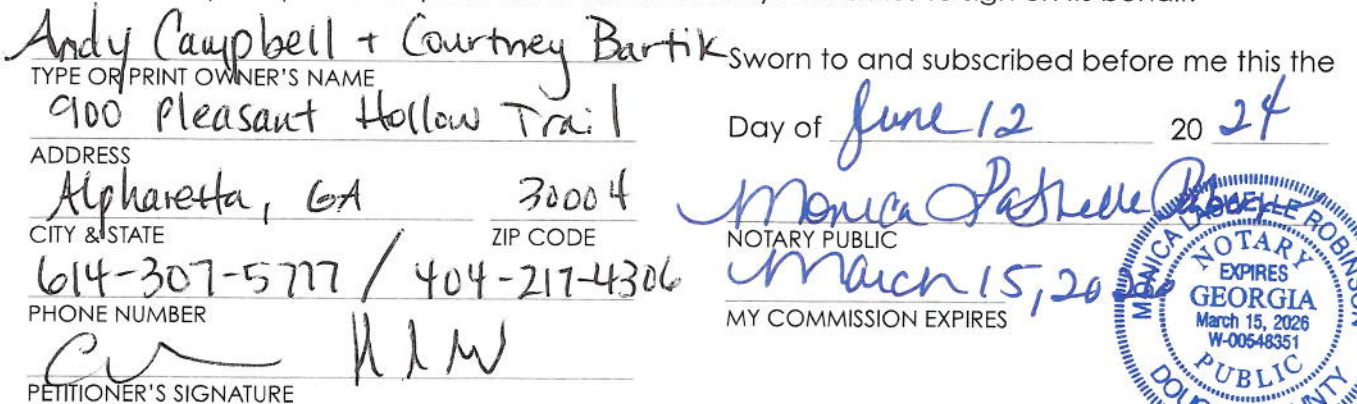 Andy Campbell + Courtney Bartik
TYPE OR PRINT OWNER'S NAME
900 Pleasant Hollow Trail
ADDRESS
Alpharetta, GA 30004
CITY & STATE ZIP CODE
614-307-5777 / 404-217-4306
PHONE NUMBER
PETITIONER'S SIGNATURE
Sworn to and subscribed before me this the
Day of June 12 20 24
Monica
NOTARY PUBLIC
March 15, 20
MY COMMISSION EXPIRES
ROBINSON
NOTARY
EXPIRES
GEORGIA
March 15, 2026
W-00548351
PUBLIC